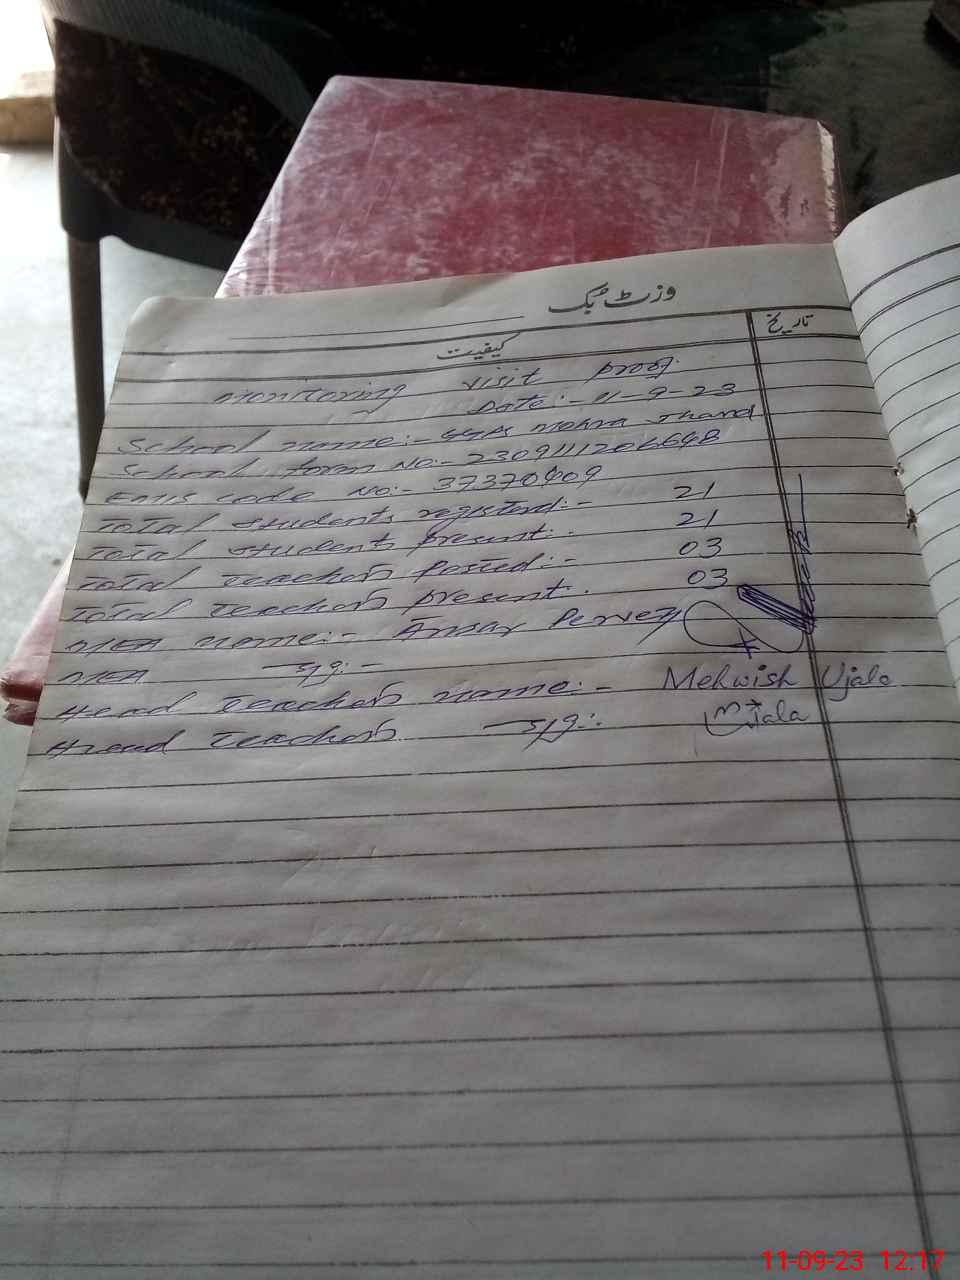 وزٹ بک
کیفیت
تاریخ
Monitoring visit proof.
Date:- 11-9-23
School name:- GGPS Mohra Jhand
School form No:- 2309111206648
EMIS code No:- 37370409
Total students registerd:- 21
Total students present:. 21
Total Teachers Posted:- 03
Total Teachers present. 03
MEA name:- Ansar Pervez
MEA sig:-
Head Teachers name:- Mehwish Ujala
Head Teachers sig:.
11-09-23 12:17